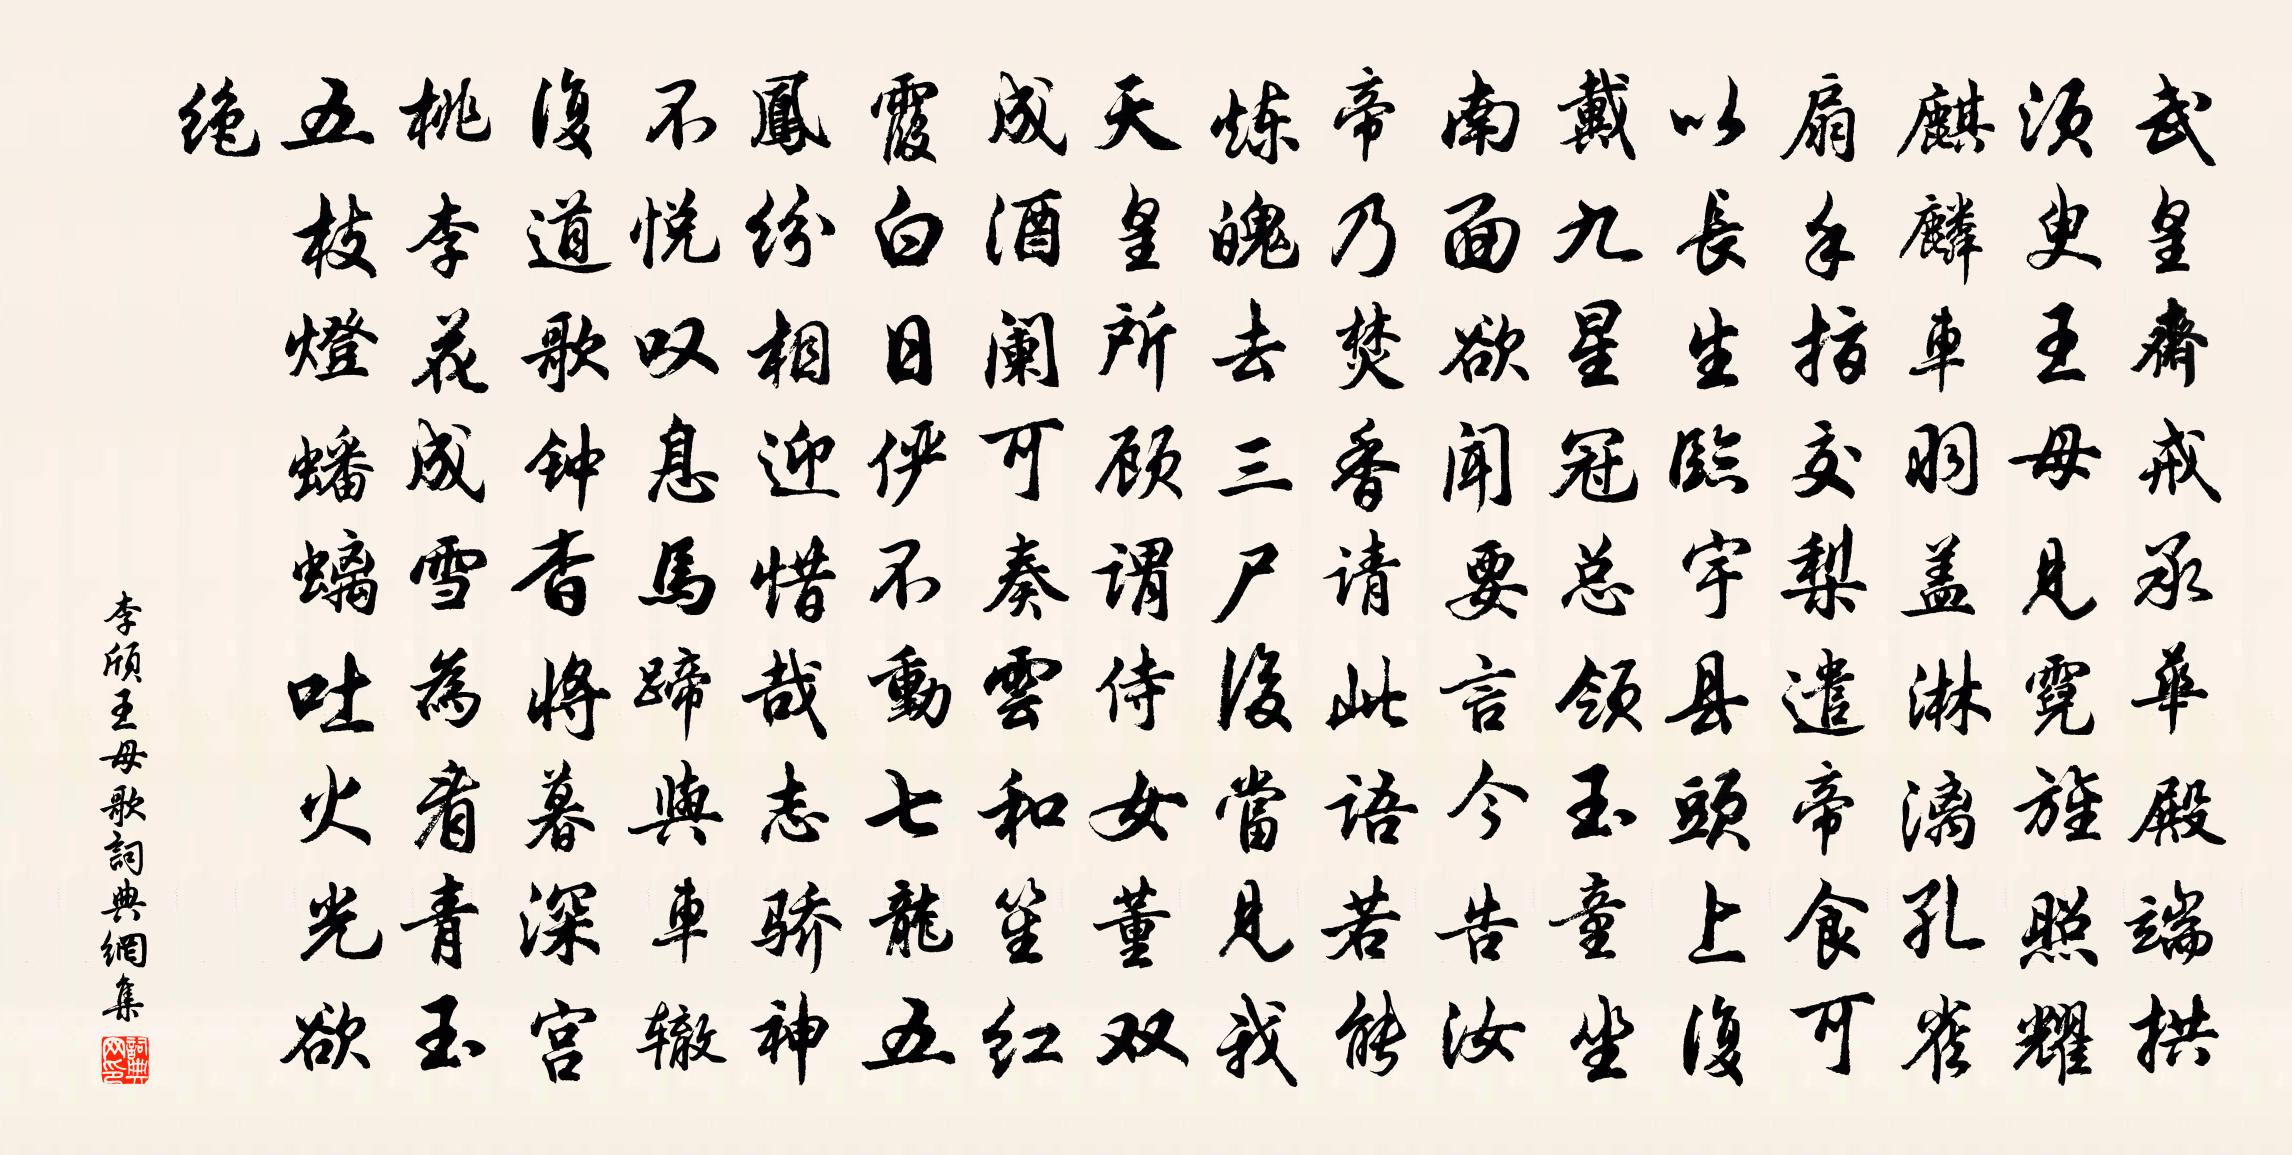 武皇齋戒承華殿端拱
須臾王母見霓旌照耀
麒麟車羽盖淋漓孔雀
扇手指交梨遣帝食可
以長生臨宇县頭上復
戴九星冠总领玉童坐
南面欲闻要言今告汝
帝乃焚香请此語若能
炼魄去三尸後當見我
天皇所顾謂侍女董双
成酒阑可奏雲和笙红
霞白日俨不動七龍五
鳳纷相迎惜哉志骄神
不悦叹息馬蹄與車辙
復道歌钟杳將暮深宫
桃李花成雪為看青玉
五枝燈蟠螭吐火光欲
绝
李颀王母歌詞典網集
詞典网印